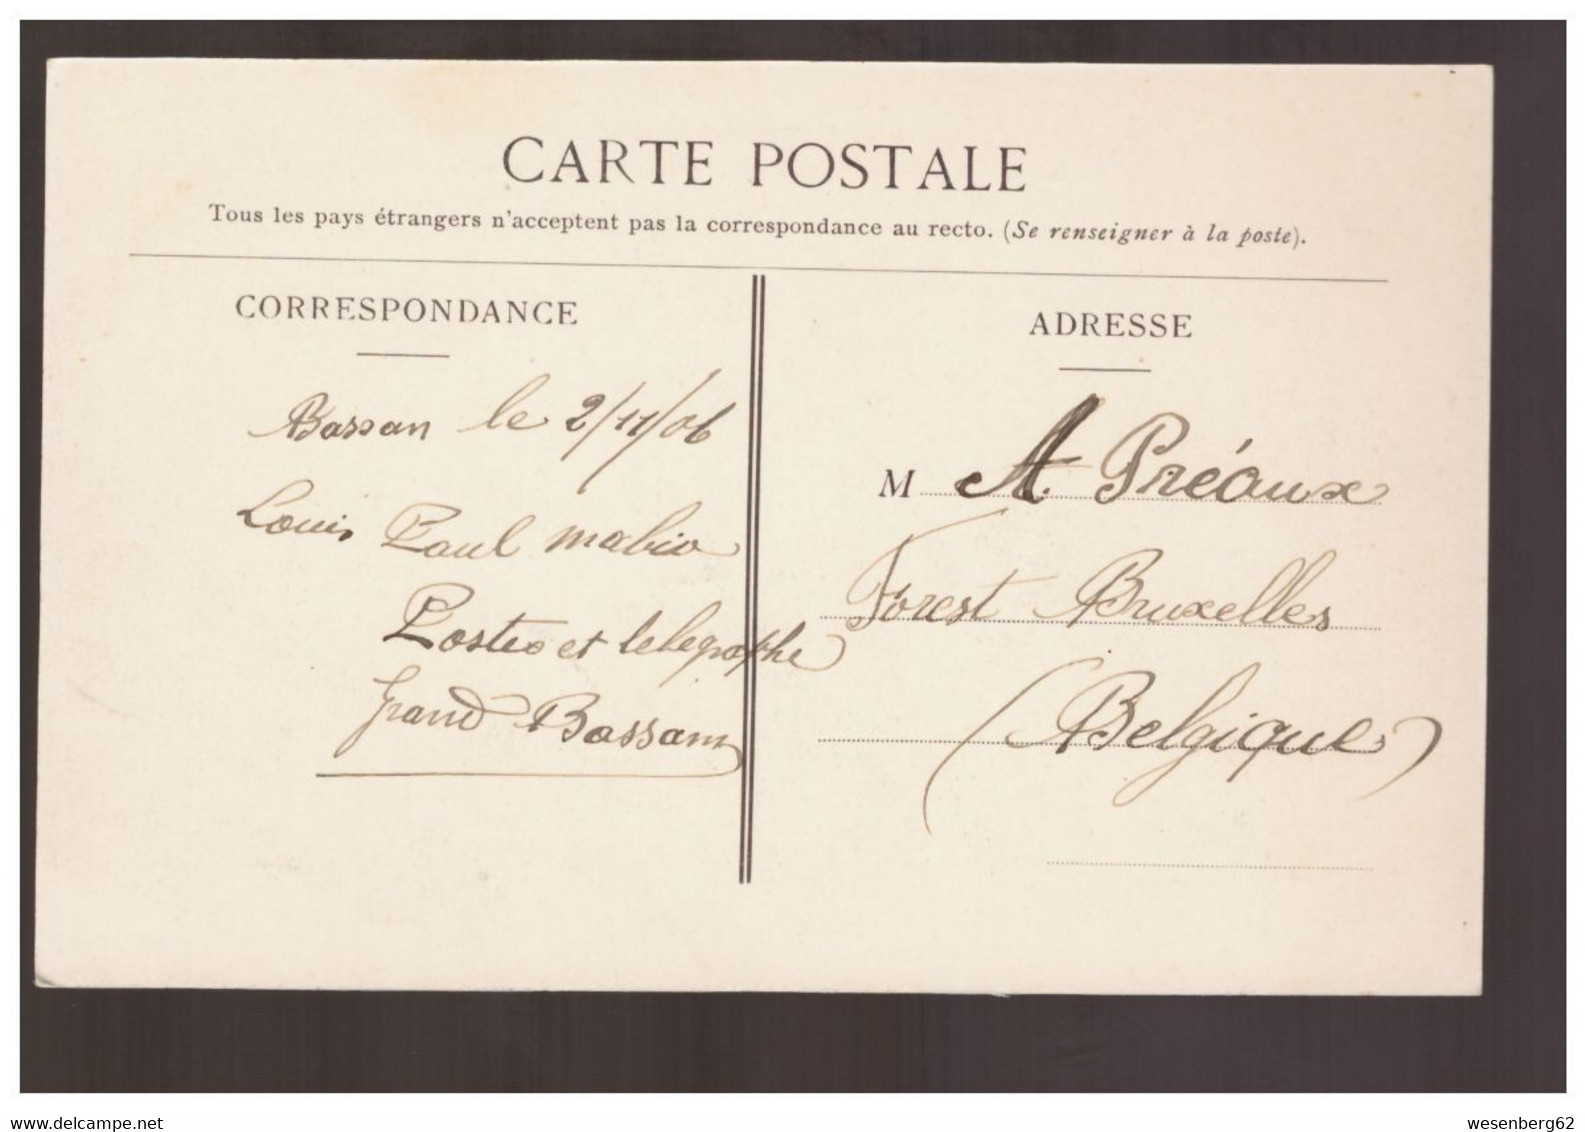 CARTE POSTALE
Tous les pays étrangers n'acceptent pas la correspondance au recto. (Se renseigner à la poste).
CORRESPONDANCE
Bassan le 2/11/06
Louis Paul mabio
Postes et telegraphe
Grand Bassam
ADRESSE
M A. Préaux
Forest Bruxelles
(Belgique)
www.delcampe.net
wesenberg62